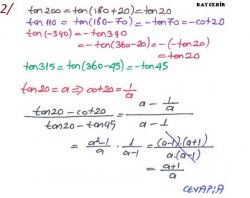 BAYCEBİR
2/ tan200 = tan(180+20) = tan20
tan110 = tan(180-70) = -tan70 = -cot20
tan(-340) = -tan340
= -tan(360-20) = -(-tan20)
= tan20
tan315 = tan(360-45) = -tan45
tan20 = a ⇒ cot20 = 1/a
(tan20 - cot20)/(tan20 - tan45) = (a - 1/a)/(a - 1)
= (a²-1)/a · 1/(a-1) = ((a-1)·(a+1))/(a·(a-1))
= (a+1)/a
CEVAP: A